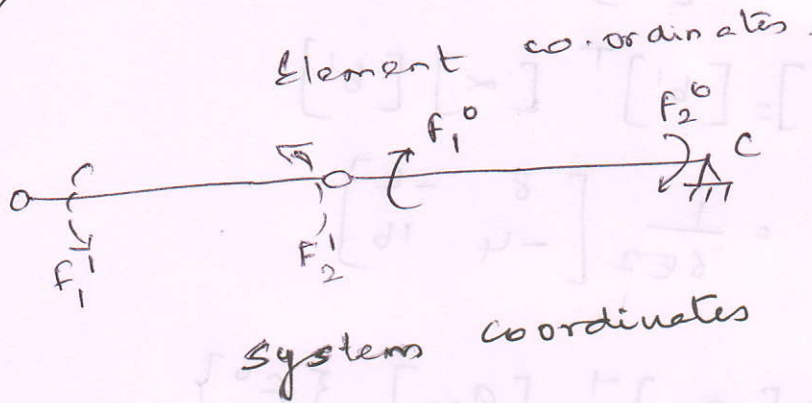 Element co.ordinates.
F₁⁰
F₂⁰
C
F₁¹
F₂¹
systems coordinates